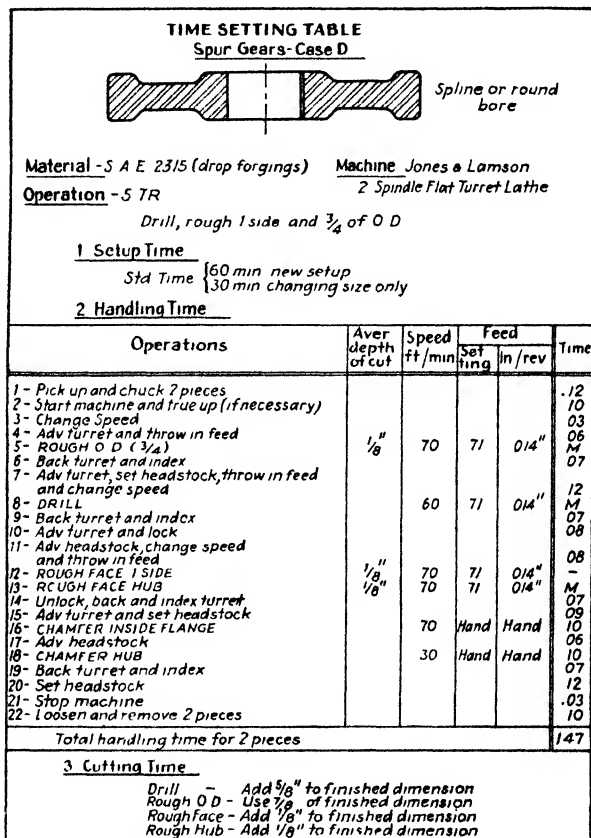 TIME SETTING TABLE
Spur Gears-Case D
Spline or round
bore
Material - S A E 2315 (drop forgings) Machine Jones & Lamson
2 Spindle Flat Turret Lathe
Operation - 5 TR
Drill, rough 1 side and 3/4 of O D
1 Setup Time
Std Time {60 min new setup
30 min changing size only
2 Handling Time
Operations Aver depth of cut Speed ft/min Feed Setting In/rev Time
1- Pick up and chuck 2 pieces .12
2- Start machine and true up (if necessary) 10
3- Change Speed 03
4- Adv turret and throw in feed 06
5- ROUGH O D (3/4) 1/8" 70 71 014" M
6- Back turret and index 07
7- Adv turret, set headstock, throw in feed
and change speed 12
8- DRILL 60 71 014" M
9- Back turret and index 07
10- Adv turret and lock 08
11- Adv headstock, change speed
and throw in feed 08
12- ROUGH FACE 1 SIDE 1/8" 70 71 014" -
13- ROUGH FACE HUB 1/8" 70 71 014" M
14- Unlock, back and index turret 07
15- Adv turret and set headstock 09
16- CHAMFER INSIDE FLANGE 70 Hand Hand 10
17- Adv headstock 06
18- CHAMFER HUB 30 Hand Hand 10
19- Back turret and index 07
20- Set headstock 12
21- Stop machine .03
22- Loosen and remove 2 pieces 10
Total handling time for 2 pieces 147
3 Cutting Time
Drill - Add 5/8" to finished dimension
Rough O D - Use 7/8 of finished dimension
Rough face - Add 1/8" to finished dimension
Rough Hub - Add 1/8" to finished dimension